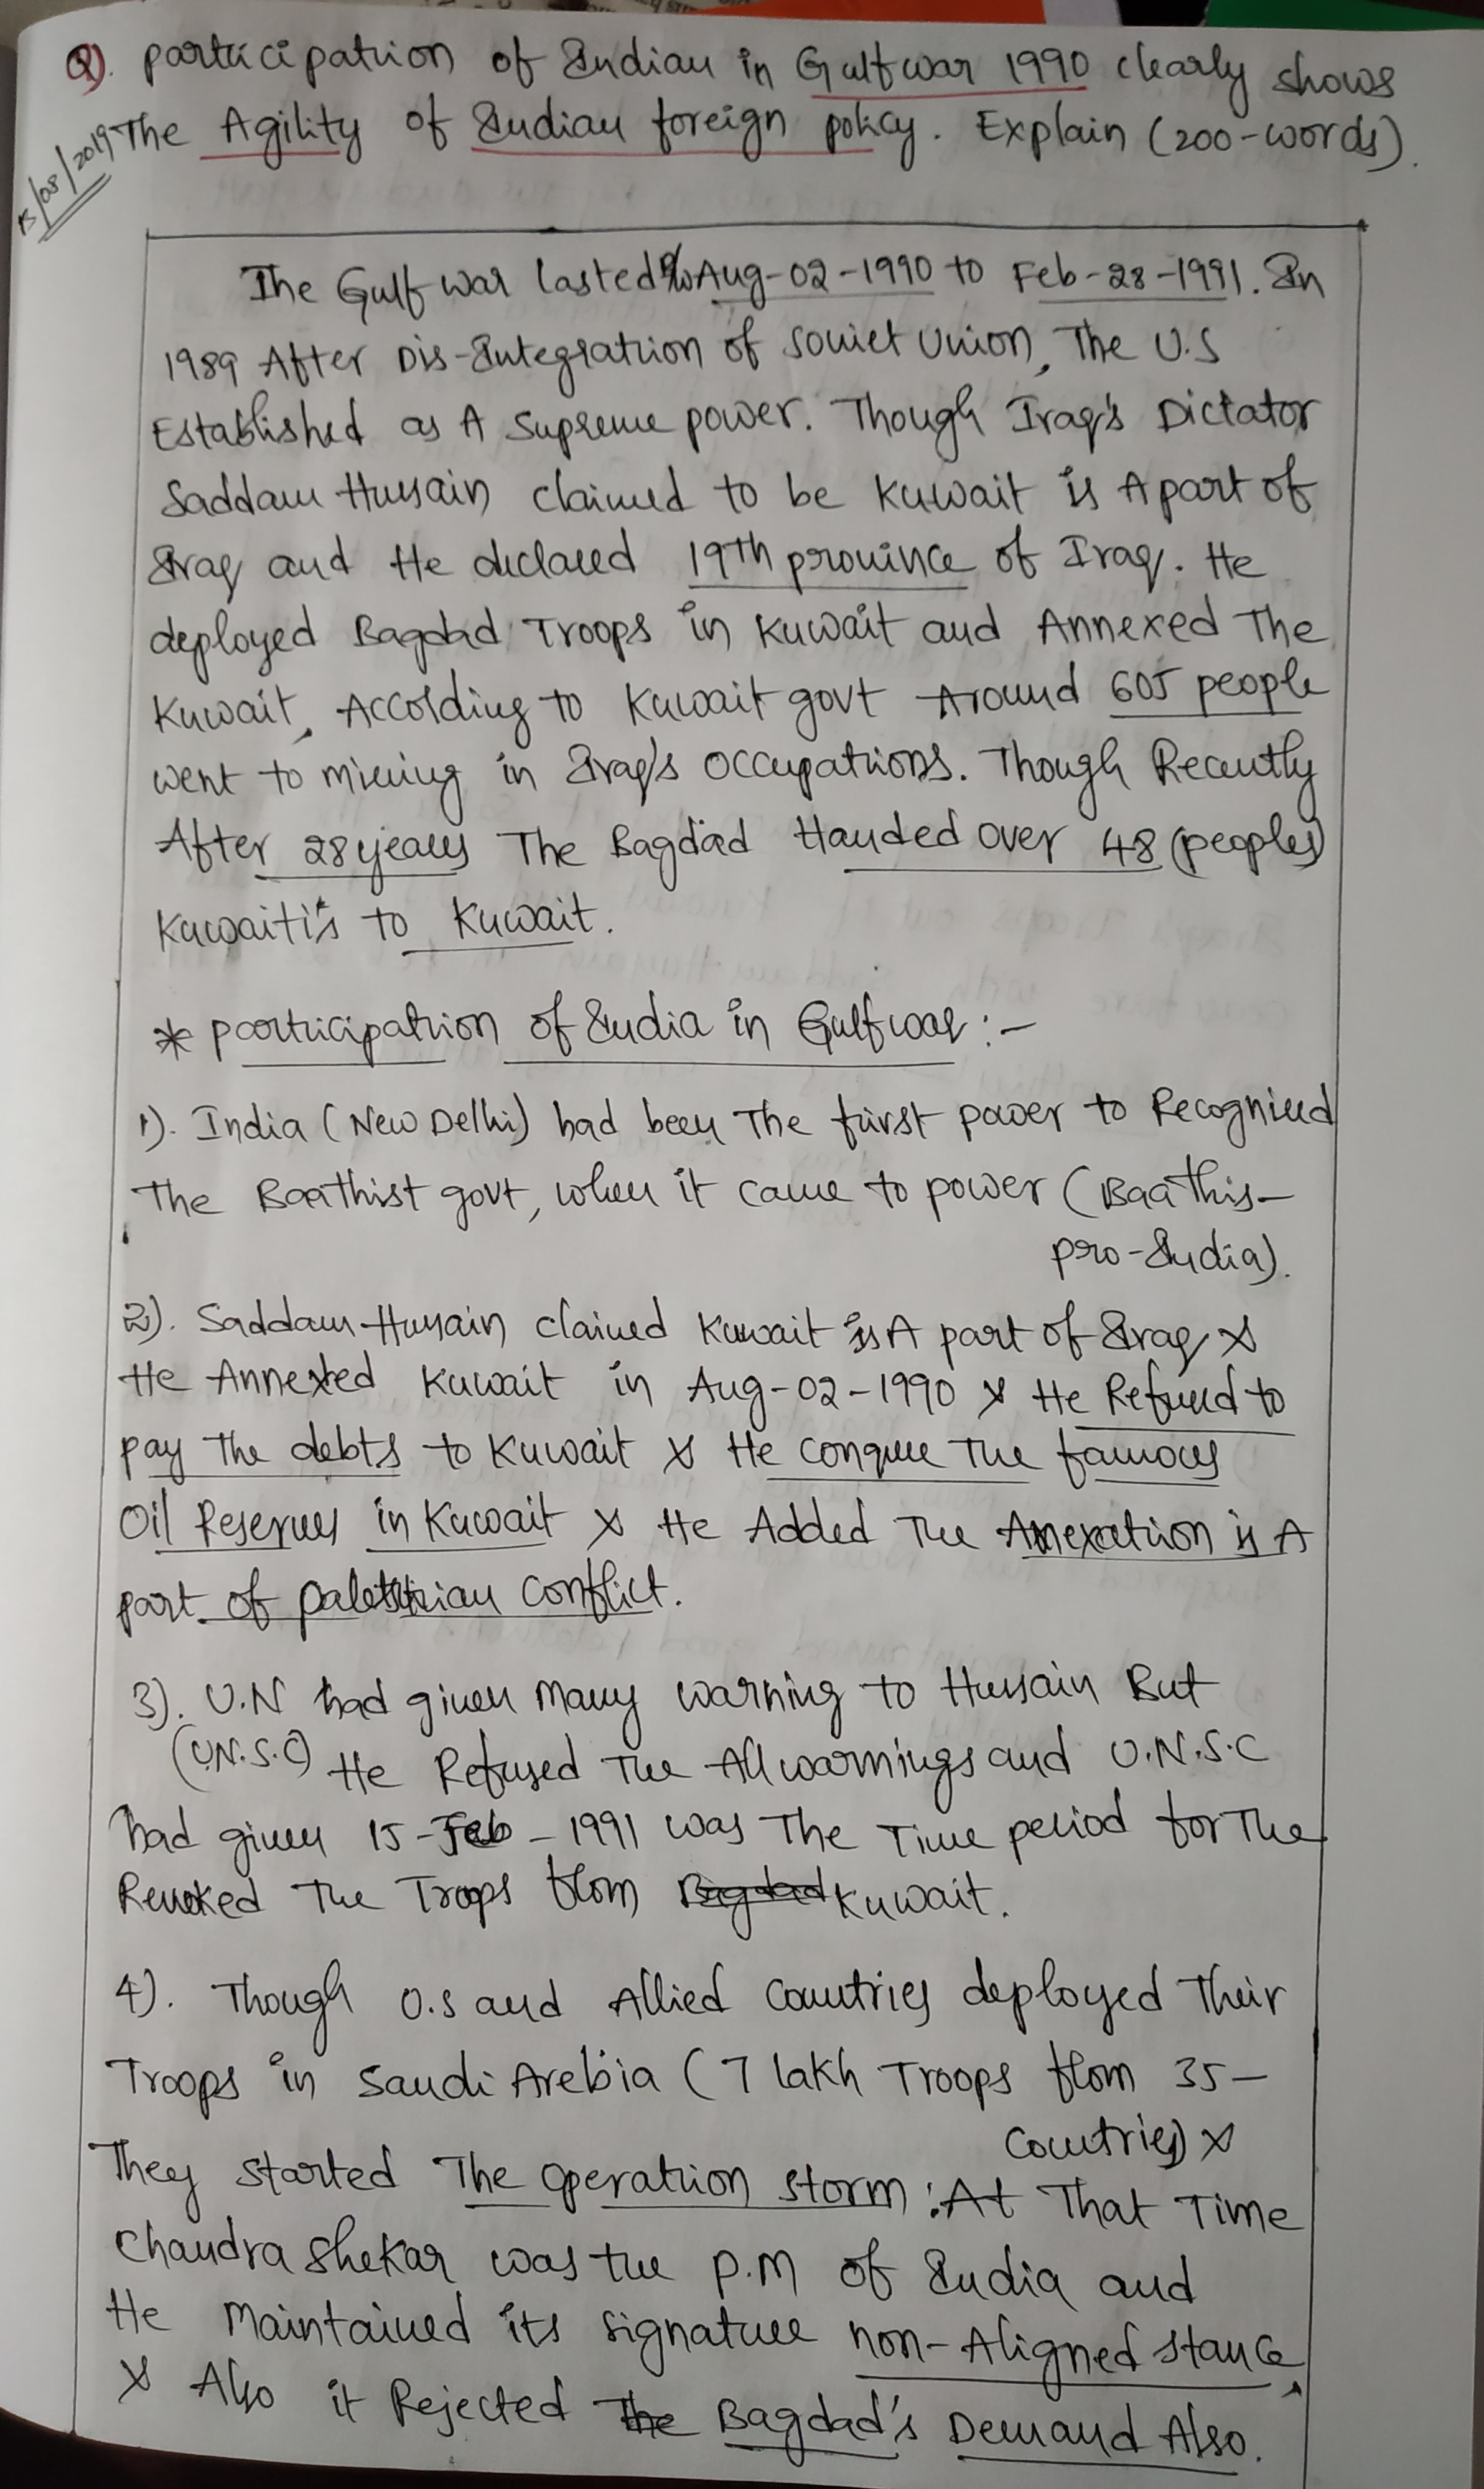 Q). participation of Indian in Gulf war 1990 clearly shows
The Agility of Indian foreign policy. Explain (200-words).
15/08/2019
The Gulf war lasted Aug-02-1990 to Feb-28-1991. In
1989 After Dis-Integration of Soviet Union, The U.S
Established as A Supreme power. Though Iraq's Dictator
Saddam Hussain claimed to be Kuwait is A part of
Iraq and He declared 19Th province of Iraq. He
deployed Bagdad Troops in Kuwait and Annexed The
Kuwait, According to Kuwait govt Around 605 people
went to missing in Iraq's occupations. Though Recently
After 28 years The Bagdad Handed over 48 (peoples)
Kuwaiti's to Kuwait.
* participation of India in Gulf war :-
1). India (New Delhi) had been The first power to Recognised
The Baathist govt, when it came to power (Baathis-
pro-India).
2). Saddam Hussain claimed Kuwait is A part of Iraq &
He Annexed Kuwait in Aug-02-1990 & He Refused to
pay The debts to Kuwait & He conquer The famous
Oil Reserves in Kuwait & He Added The Annexation is A
part of palestinian conflict.
3). U.N had given Many warning to Hussain But
(U.N.S.C) He Refused The All warnings and U.N.S.C
had given 15-Feb-1991 was The Time period for The
Revoked The Troops from Bagdad Kuwait.
4). Though U.S and Allied Countries deployed Their
Troops in Saudi Arebia (7 lakh Troops from 35-
Countries) &
They started The operation storm : At That Time
Chandra Shekar was the P.M of India and
He Maintained its signature non-Aligned stance,
& Also it Rejected The Bagdad's Demand Also.